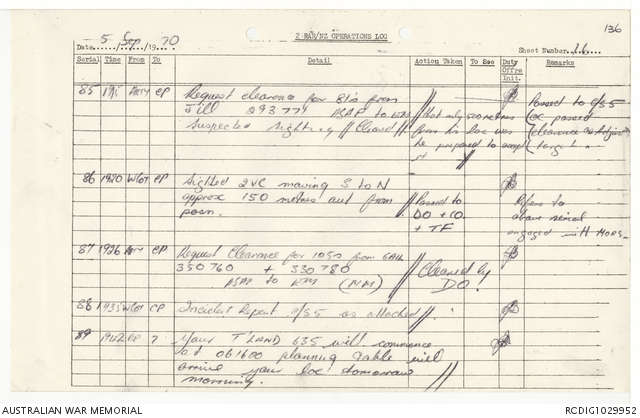 136
2 RAR/NZ OPERATIONS LOG
Date 5 Sep /19 70
Sheet Number 16
Serial Time From To Detail Action Taken To See Duty Offrs Init. Remarks
85 191 Arty CP Request clearance for 81's from
Jill 293 777 ASAP to
suspected sighting // Cleared //
that only 500 metres
from his loc was
he prepared to accept
it //
Passed to 
loc passed
(clearance
target
86 1920 CP Sighted 2 VC moving S to N
approx 150 metres out from
posn.
Passed to
DO + CO
+ TF
Refers to
above serial
engaged with MORS.
87 1926 Arty CP Request Clearance for 105s from
350 760 + 330 780
ASAP to (NM)
// Cleared by
DO!
88 1935 CP Incident Report as attached //
89 7 Your T'LAND 635 will commence
at 061600 planning table will
arrive your loc tomorrow
morning. //
AUSTRALIAN WAR MEMORIAL
RCDIG1029952